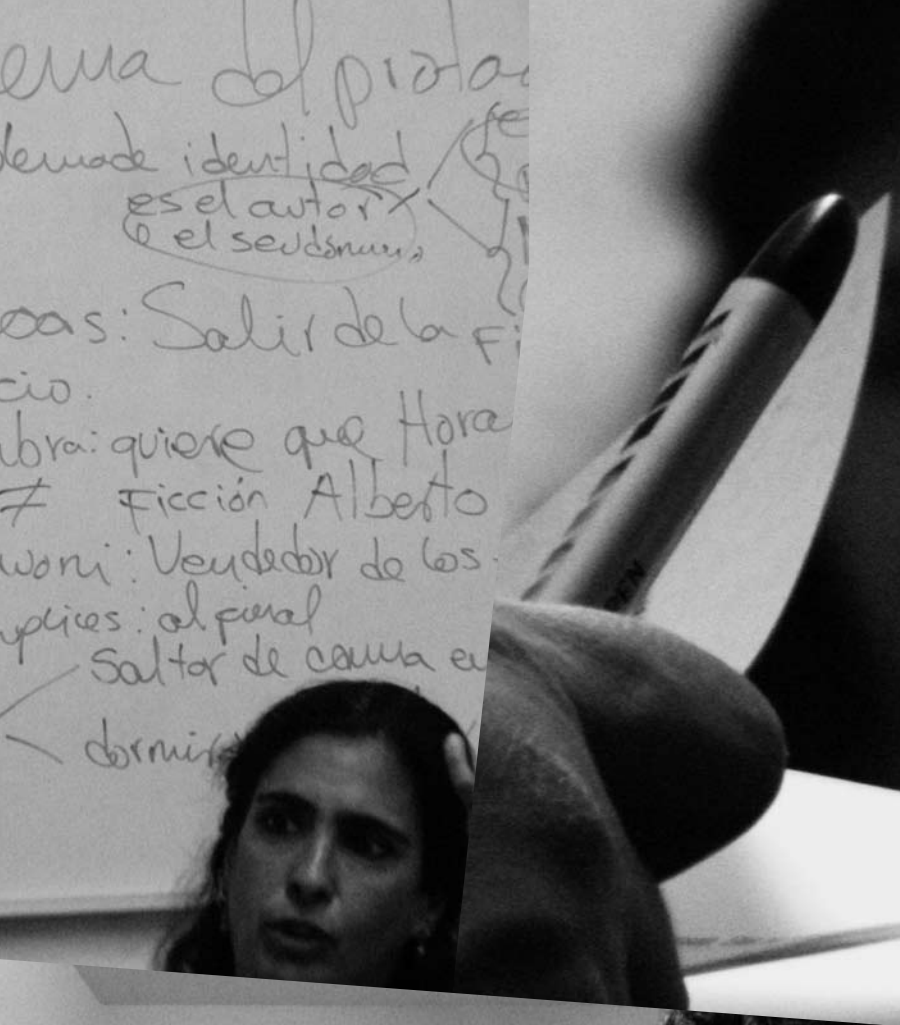 ema del protag
dema de identidad
es el autor
o el seudónimo
oas: Salir de la Fi
cio.
abra: quiere que Hora
≠ Ficción Alberto
woni: Vendedor de los
uplices: al final
Saltar de cama en
dormir
PEN